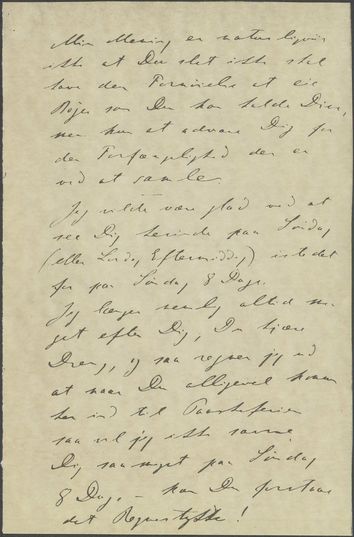 Min Mening er naturligvis
ikke at Du slet ikke skal
have den Fornøielse at eie
Bøger som Du kan kalde Dine,
men kun at advare Dig for
den Forfængelighed der er
ved at samle.
Jeg vilde være glad ved at
see Dig herinde paa Søndag
(eller Lørdag Eftermiddag) istedet
for paa Søndag 8 Dage.
Jeg længes nemlig altid me-
get efter Dig, Du kjære
Dreng, og saa regner jeg ud
at naar Du alligevel kommer
her ind til Paaskeferien
saa vil jeg ikke savne
Dig saa meget paa Søndag
8 Dage – kan Du forstaae
det Regnestykke!